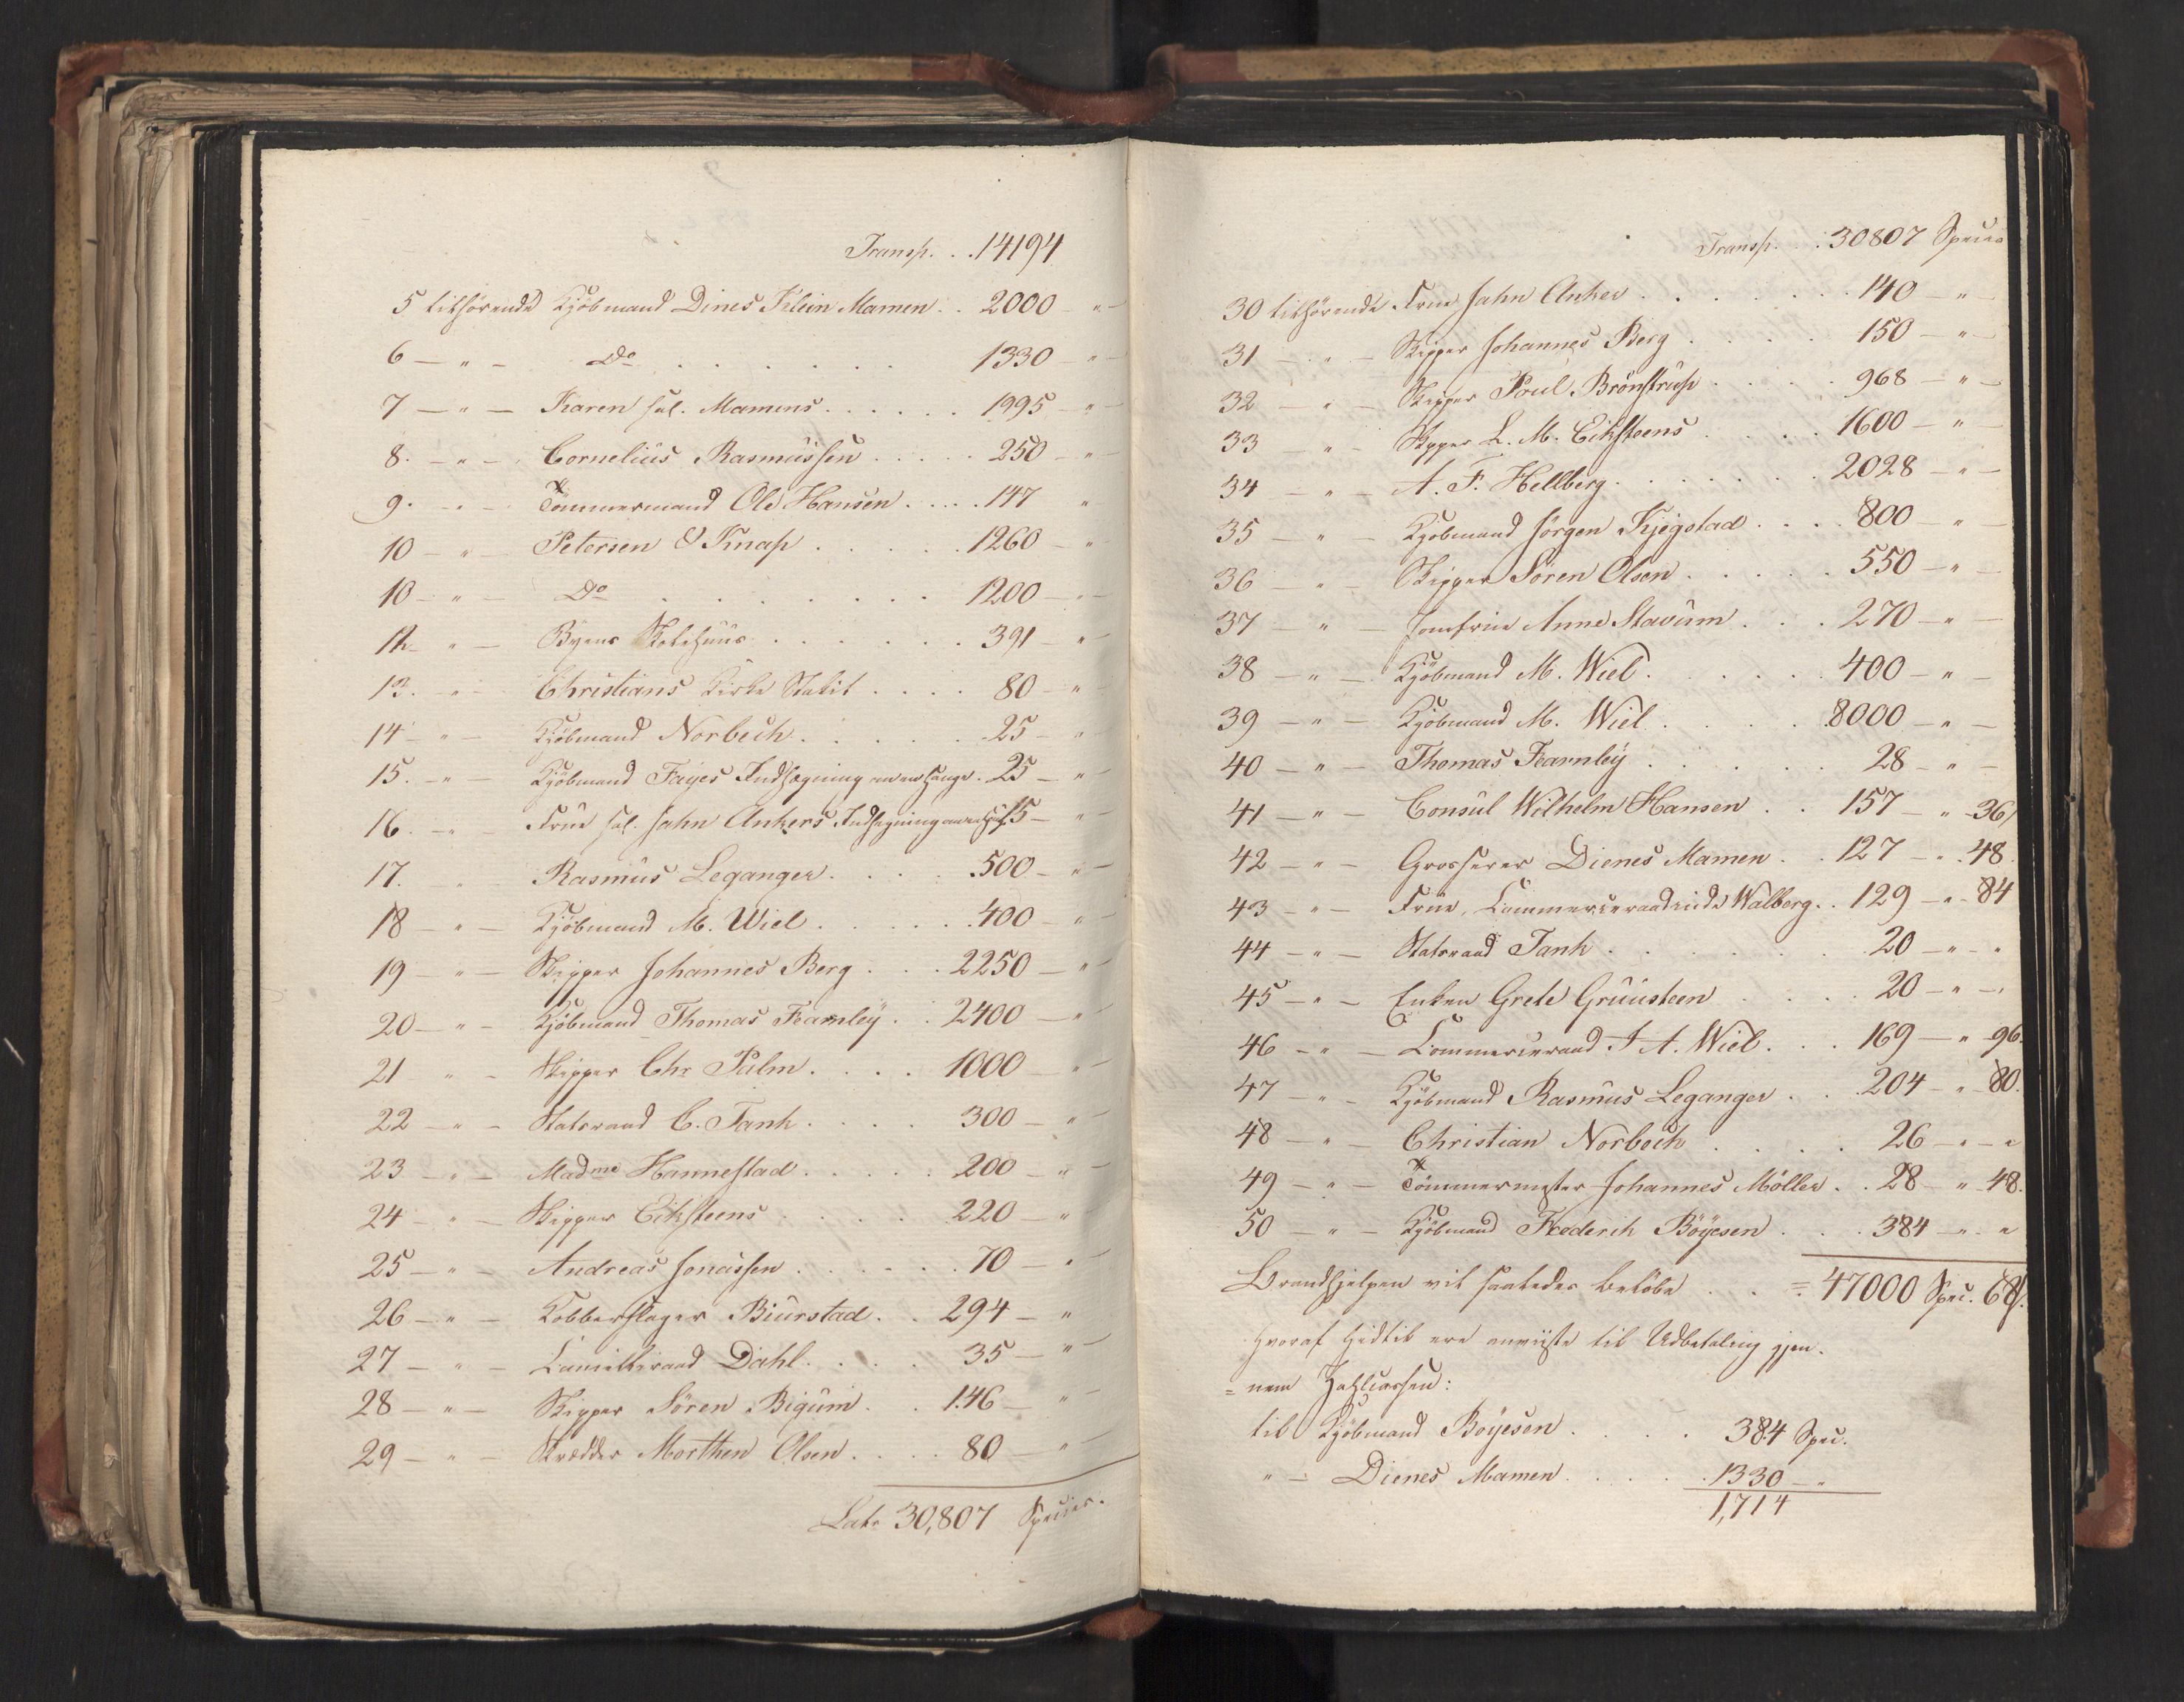 Transp. . . 14194
5 tilhørende Kjøbmand Dines Klein Mamen . . 2000 - "
6 - " - Do . . . . . . . 1330 - "
7 - " - Karen sal. Mamens . . . . . . 1995 - "
8. - " - Cornelius Rasmussen . . . . . 250 - "
9. - " - Tömmermand Ole Hansen . . . . 147 "
10 - " - Petersen & Knap . . . . . 1260 - "
10 - " - Do . . . . . . . . 1200 - "
12 - " - Byens Kolehuus . . . . . . 391 - "
13. - " - Christians Kirke Stakit . . . . 80 - "
14 - " - Kjöbmand Norbech . . . . . 25 - "
15. - " - Kjöbmand Fayes Indhegning om en Hauge . 25 - "
16. - " - Frue sal. Jahn Ankers Indhegning om en Hauge 15 - "
17. " - Rasmus Leganger . . . . 500 - "
18 - " - Kjöbmand M. Wiel . . . . . . 400 - "
19 - " - Skipper Johannes Berg . . . 2250 - "
20 - " - Kjöbmand Thomas Fearnley . . 2400 - "
21 " - Skipper Chr Palm . . . . 1000 - "
22 - " - Statsraad C. Tank . . . . 300 - "
23 - " - Madme Hannestad . . . . . 200 - "
24 - " - Skipper Eiksteens . . . . 220 - "
25 - " - Andreas Jonassen . . . . . . 70 - "
26 - " - Kobberslager Biurstad . . 294 - "
27 - " - Cancelliraad Dahl . . . . 35 - "
28 - " - Skipper Sören Bigum . . 146 - "
29 - " - Skrædder Morthen Olsen . . . . 80 - "
Lats 30,807 Species.
Transp. . . 30807 Specis
30 tilhörende Frue Jahn Anker . . . . . . 140 - "
31 - " - Skipper Johannes Berg . . . . 150 - "
32 - " - Skipper Poul Brönstrup . . . . 968 - " -
33 " - Skipper L. M. Eiksteens . . . . 1600 - " -
34 - " - A. F. Hellberg . . . . . . . 2028 - " -
35 - " - Kjöbmand Jörgen Kjegstad . . . . 800 - " -
36 - " - Skipper Sören Olsen . . . . . 550 - " -
37 - " Jomfrue Anne Stavum . . . 270 - " -
38 - " - Kjöbmand M. Wiel . . . . . . 400 - " -
39 - " - Kjöbmand M. Wiel . . . . . 8000 - " -
40 - " - Thomas Fearnley . . . . . . 28 - " -
41 - " - Consul Wilhelm Hansen . . 157 - " - 36
42 - " - Grosserer Dienes Mamen . . 127 - " - 48
43 - " - Frue, Commerceraadinde Walberg . . 129 - " - 84
44 - " - Statsraad Tank . . . . . . . 20 - " - "
45 - " - Enken Grete Gruusteen . . . . 20 - " - "
46 - " - Commerceraad I A. Wiel . . . 169 - " 96.
47 - " - Kjöbmand Rasmus Leganger . . . 204 - " 80.
48 - " - Christian Norbech . . . . . 26 - " - "
49 - " - Tömmermester Johannes Möller . . 28 - " - 48.
50 - " - Kjöbmand Frederik Böyesen . . . 384 - " - "
Brandhjelpen vil saaledes belöbe . . = 47000 Spec. 68
hvoraf hidtil ere anviiste til Udbetaling gjen-
= nem Zahlcassen:
til Kjöbmand Boyesen . . . . 384 Spec.
" - Dienes Mamen . . . . . 1330 - "
1,714